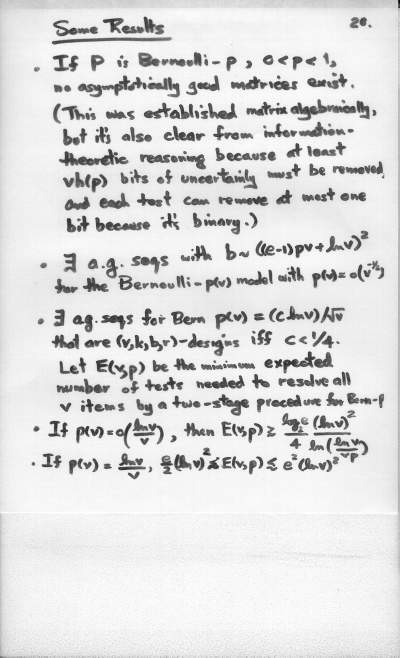 Some Results
20.
• If P is Bernoulli-p, 0<p<1,
no asymptotically good matrices exist.
(This was established matrix algebraically,
but it's also clear from information-
theoretic reasoning because at least
vh(p) bits of uncertainty must be removed
and each test can remove at most one
bit because it's binary.)
• ∃ a.g. seqs with b~((e-1)pv+lnv)²
for the Bernoulli-p(v) model with p(v)=o(v^-½)
• ∃ ag. seqs for Bern p(v) = (c lnv)/√v
that are (v,k,b,r)-designs iff c<¼.
Let E(v,p) be the minimum expected
number of tests needed to resolve all
v items by a two-stage procedure for Bern-p
• If p(v)=o(lnv/v), then E(v,p) ≥ log₂e/4 (lnv)²/ln(lnv/vp)
• If p(v) = lnv/v, e/2(lnv)² ≲ E(v,p) ≲ e²(lnv)²